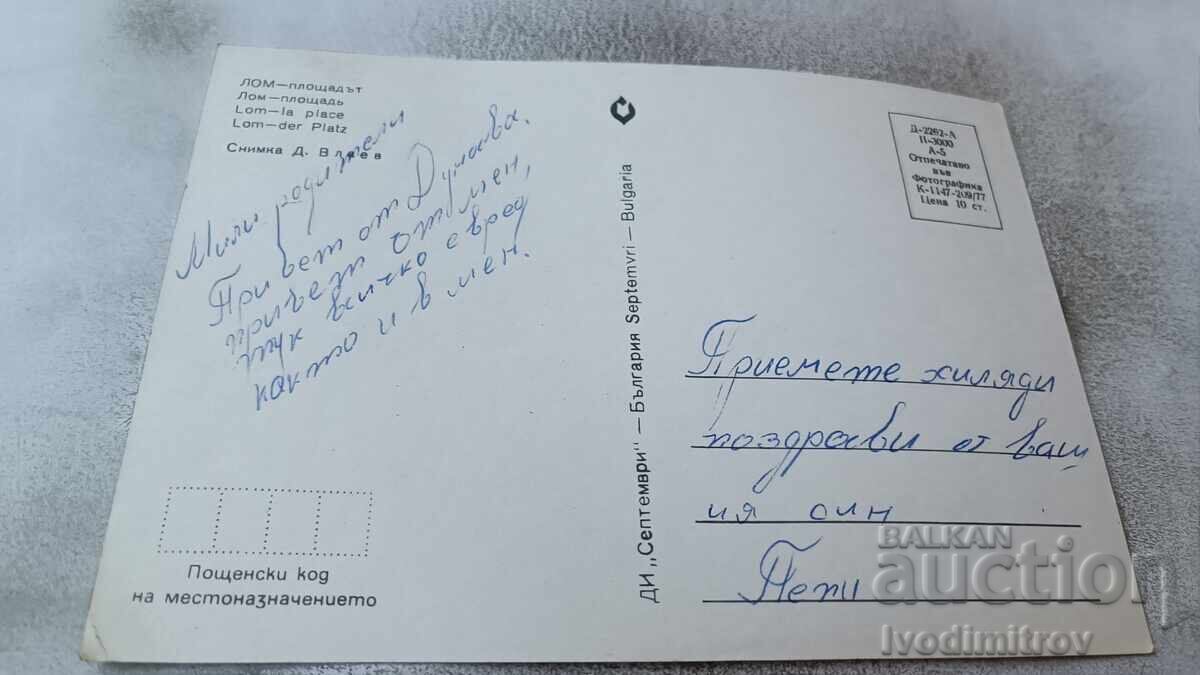 ЛОМ—площадът
Лом—площадь
Lom—la place
Lom—der Platz
Снимка Д. Влаев
Мили родители
Привет от Дунава.
при вас
всичко е вред
както и в мен.
Пощенски код
на местоназначението
ДИ „Септември" — България Septemvri — Bulgaria
Д-2262-А
II-3000
А-5
Отпечатано
във
Фотографика
К-1147-209/77
Цена 10 ст.
Приемете хиляди
поздрави от ваш
ия син
Пепи
BALKAN
auction
Ivodimitrov